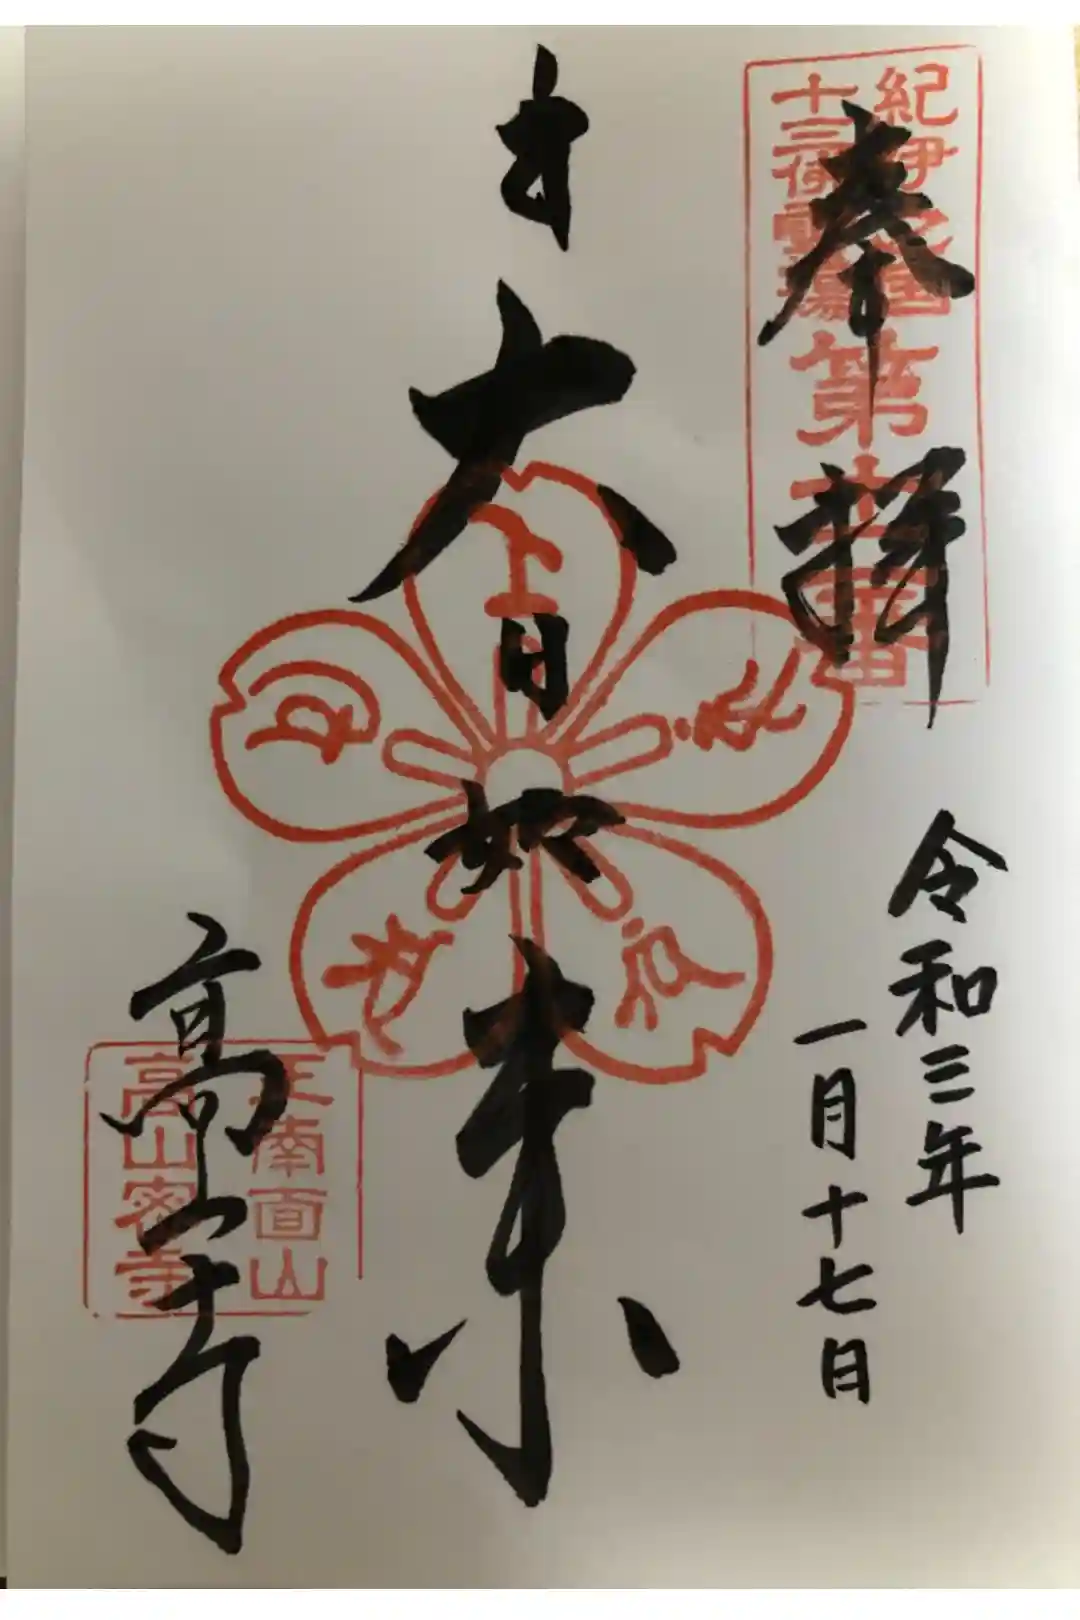 奉拝
紀伊之国
十三佛霊場
第十二番
令和三年
一月十七日
大日如来
高山寺
正南面山
高山密寺